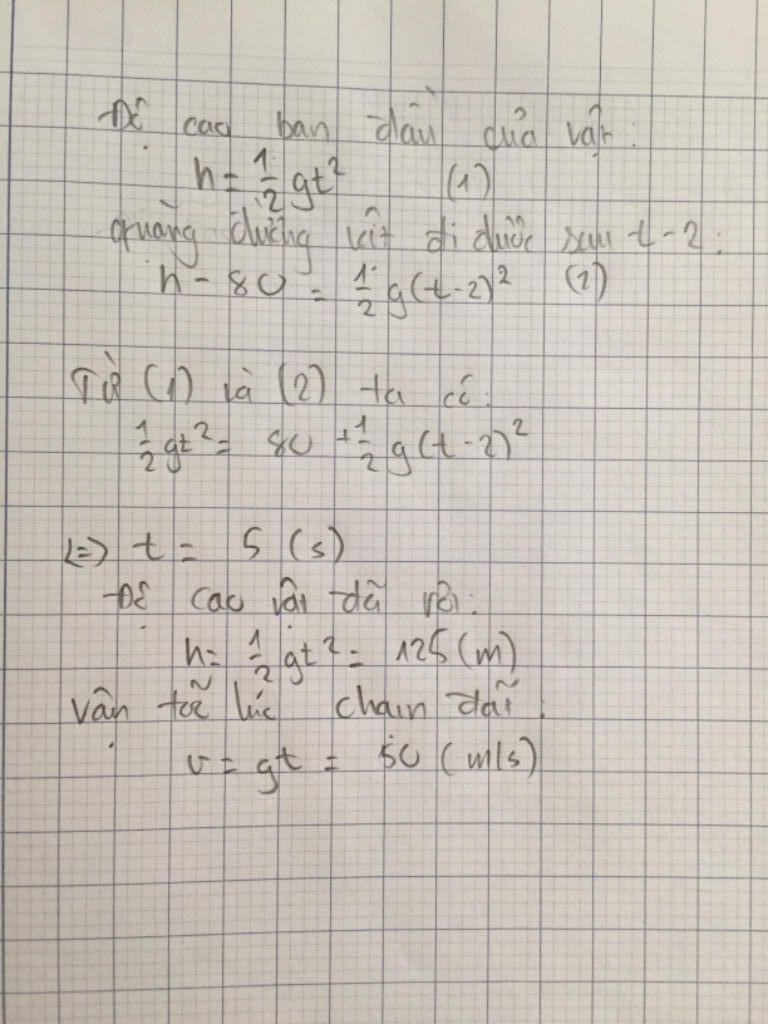 Độ cao ban đầu của vật:
h = 1/2 gt² (1)
quãng đường vật đi được sau t - 2:
h - 80 = 1/2 g(t - 2)² (2)
Từ (1) và (2) ta có:
1/2 gt² = 80 + 1/2 g(t - 2)²
<=> t = 5 (s)
Độ cao vật đã rơi:
h = 1/2 gt² = 125 (m)
Vận tốc lúc chạm đất:
v = gt = 50 (m/s)